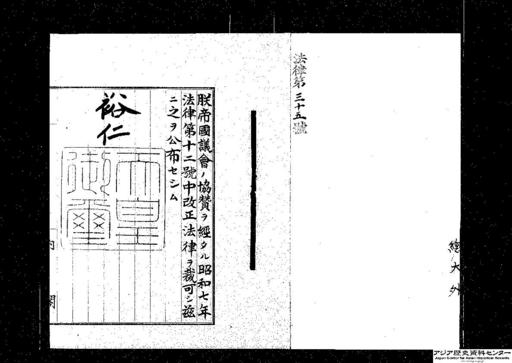 法律第三十五號
朕帝國議會ノ協賛ヲ經タル昭和七年
法律第十二號中改正法律ヲ裁可シ茲
ニ之ヲ公布セシム
裕仁
天皇
御璽
内閣
アジア歴史資料センター
Japan Center for Asian Historical Records